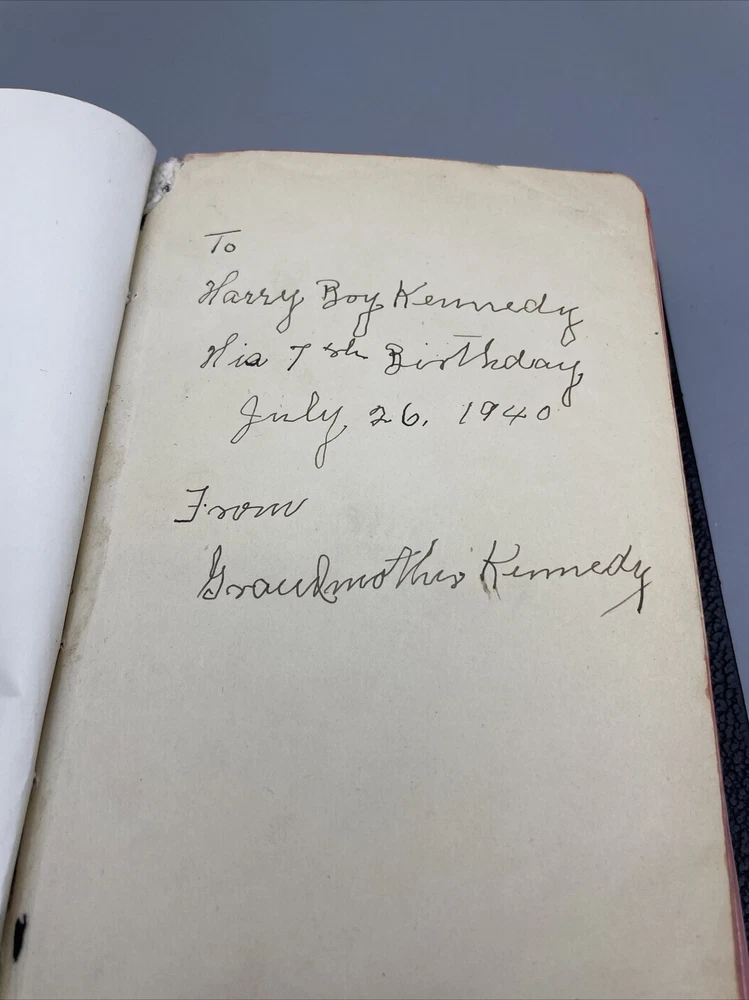 To
Harry Boy Kennedy
His 7th Birthday
July 26, 1940
From
Grandmother Kennedy